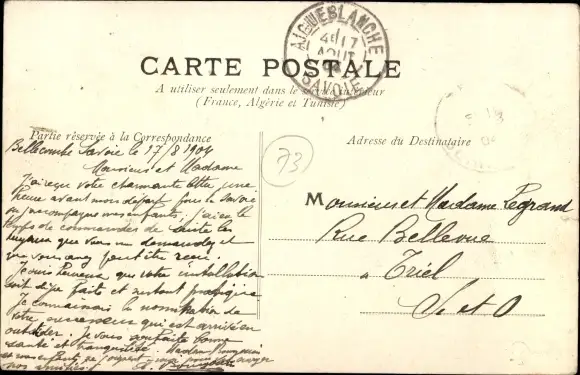 AIGUEBLANCHE
AOUT
SAVOIE
CARTE POSTALE
A utiliser seulement dans le service intérieur
(France, Algérie et Tunisie)
Partie réservée à la Correspondance
Adresse du Destinataire
73
Bellecombe Savoie le 17/8 1904
Monsieur et Madame
J'ai reçu votre charmante lettre une
heure avant mon départ pour la Savoie
j'ai eu le
temps de commander de suite les
tuyaux que vous me demandez et
que vous avez peut être reçu.
Je suis heureux que votre installation
soit déjà faite et surtout
Je connaissais la nomination de
votre successeur qui est arrivé en
Je vous souhaite bonne
santé et tranquilité. Madame
et mes enfants se joignent à moi pour
nos amitiés
Monsieur et Madame Legrand
Rue Bellevue
à Triel
S. et O